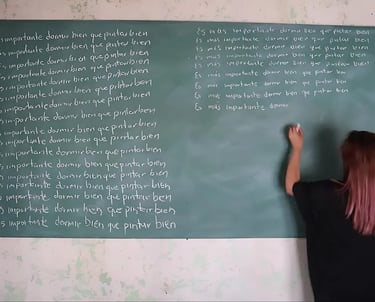 s importante dormir bien que pintar bien
s importante dormir bien que pintar bien
s importante dormir bien que pintar bien
importante dormir bien que pintar bien
s importante dormir bien que pintar bien
s importante dormir bien que pintar bien
s importante dormir bien que pintar bien
s importante dormir bien que pintar bien
importante dormir bien que pintar bien
importante dormir bien que pintar bien
importante dormir bien que pintar bien
importante dormir bien que pintar bien
s importante dormir bien que pintar bien
importante dormir bien que pintar bien
s importante dormir bien que pintar bien
s importante dormir bien que pintar bien
Es más importante dormir bien que pintar bien
Es más importante dormir bien que pintar bien
Es más importante dormir bien que pintar bien
Es más importante dormir bien que pintar bien
Es más importante dormir bien que pintar bien
Es más importante dormir bien que pintar bien
Es más importante dormir bien que pintar bien
Es más importante dormir